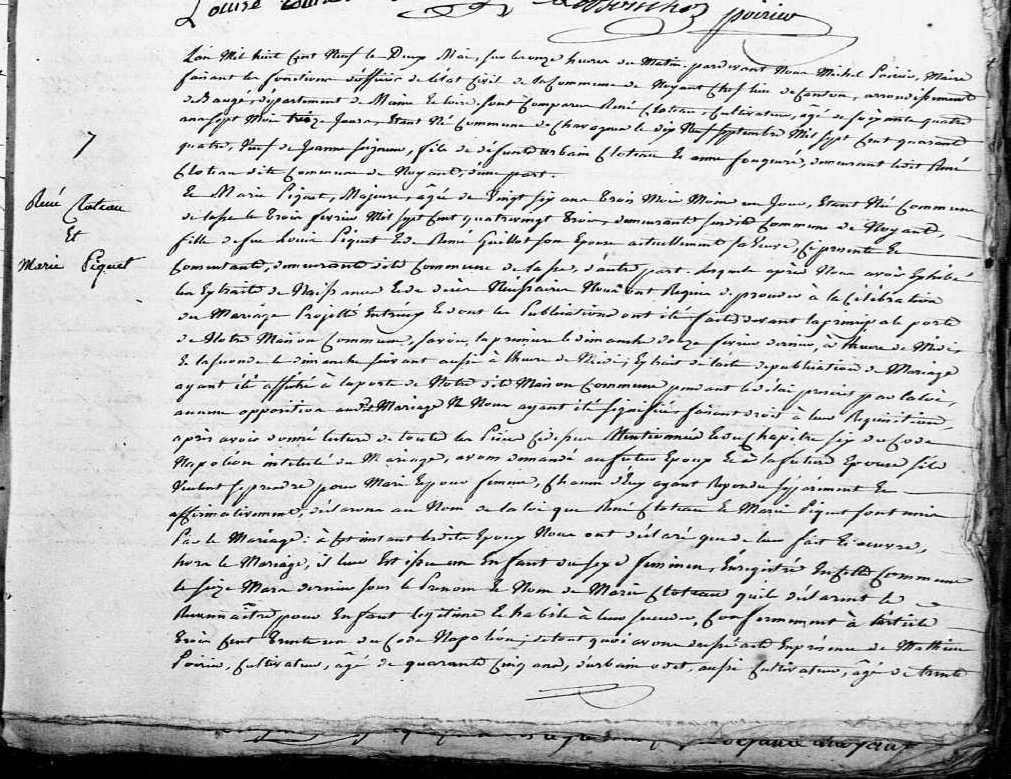 Louise
poirier
L'an Mil huit Cent Neuf le Deux Mai, sur les onze heures du Matin, pardevant Nous Michel Poirier, Maire
faisant les fonctions d'officier de l'état Civil de la Commune de Noyant Chef lieu de Canton, arrondissement
de Baugé, département de Maine et loire, sont Comparus René Cloteau, Cultivateur, âgé de soixante quatre
ans sept Mois treize Jours, Etant Né Commune de Chavaigne le dix Neuf septembre Mil sept Cent quarante
quatre, Veuf de Jeanne , fils de défunts urbain Cloteau et anne fougeré, demeurant ledit René
Cloteau dite Commune de Noyant, d'une part.
Et Marie Piquet, Majeure, âgée de Vingt six ans Trois Mois Moins un Jour, Etant Née Commune
7
de lasse le Trois février Mil sept Cent quatrevingt Trois, demeurante susdite Commune de Noyant,
René Cloteau
fille de feu Louis Piquet et de René Guillot son Epouse actuellement sa Veuve, Ci présente et
Et
Consentante, demeurante dite Commune de lasse, d'autre part. lesquels après Nous avoir Exhibé
Marie Piquet
les Extraits de Naissance et de décès Nécessaires Nous ont Requis de procéder à la Célébration
du Mariage Projetté Entr'eux et dont les Publications ont été faites devant la principale porte
de Notre Maison Commune, savoir, la première le dimanche douze février dernier, à l'heure de Midi,
Et la seconde le dimanche suivant aussi à l'heure de Midi; Extrait de l'acte de publication de Mariage
ayant été affiché à la porte de Notre dite Maison Commune pendant le délai prescrit par la loi,
aucune opposition audit Mariage Ne Nous ayant été signifiée, faisant droit à leur Réquisition,
après avoir donné lecture de toutes les Pièces Cidessus Mentionnées et du Chapitre six du Code
Napoléon intitulé du Mariage, avons demandé au futur Epoux et à la future Epouse s'ils
Veulent se prendre pour Mari et pour femme, Chacun d'Eux ayant Répondu séparément et
affirmativement, déclarons au Nom de la loi que René Cloteau et Marie Piquet sont unis
Par le Mariage: à Cet instant lesdits Epoux Nous ont déclaré que de leur fait et œuvre,
hors le Mariage, il leur Est issu un Enfant du sexe féminin, Enregistré En Cette Commune
le seize Mars dernier sous le Prénom et Nom de Marie Cloteau qu'ils déclarent
Reconnaître pour Enfant légitime et habile à leur succéder, Conformément à l'article
Trois Cent Trente un du Code Napoléon; de tout quoi avons dressé acte En présence de Mathieu
Poirier, Cultivateur, âgé de quarante Cinq ans, d'urbain odet, aussi Cultivateur, âgé de trente